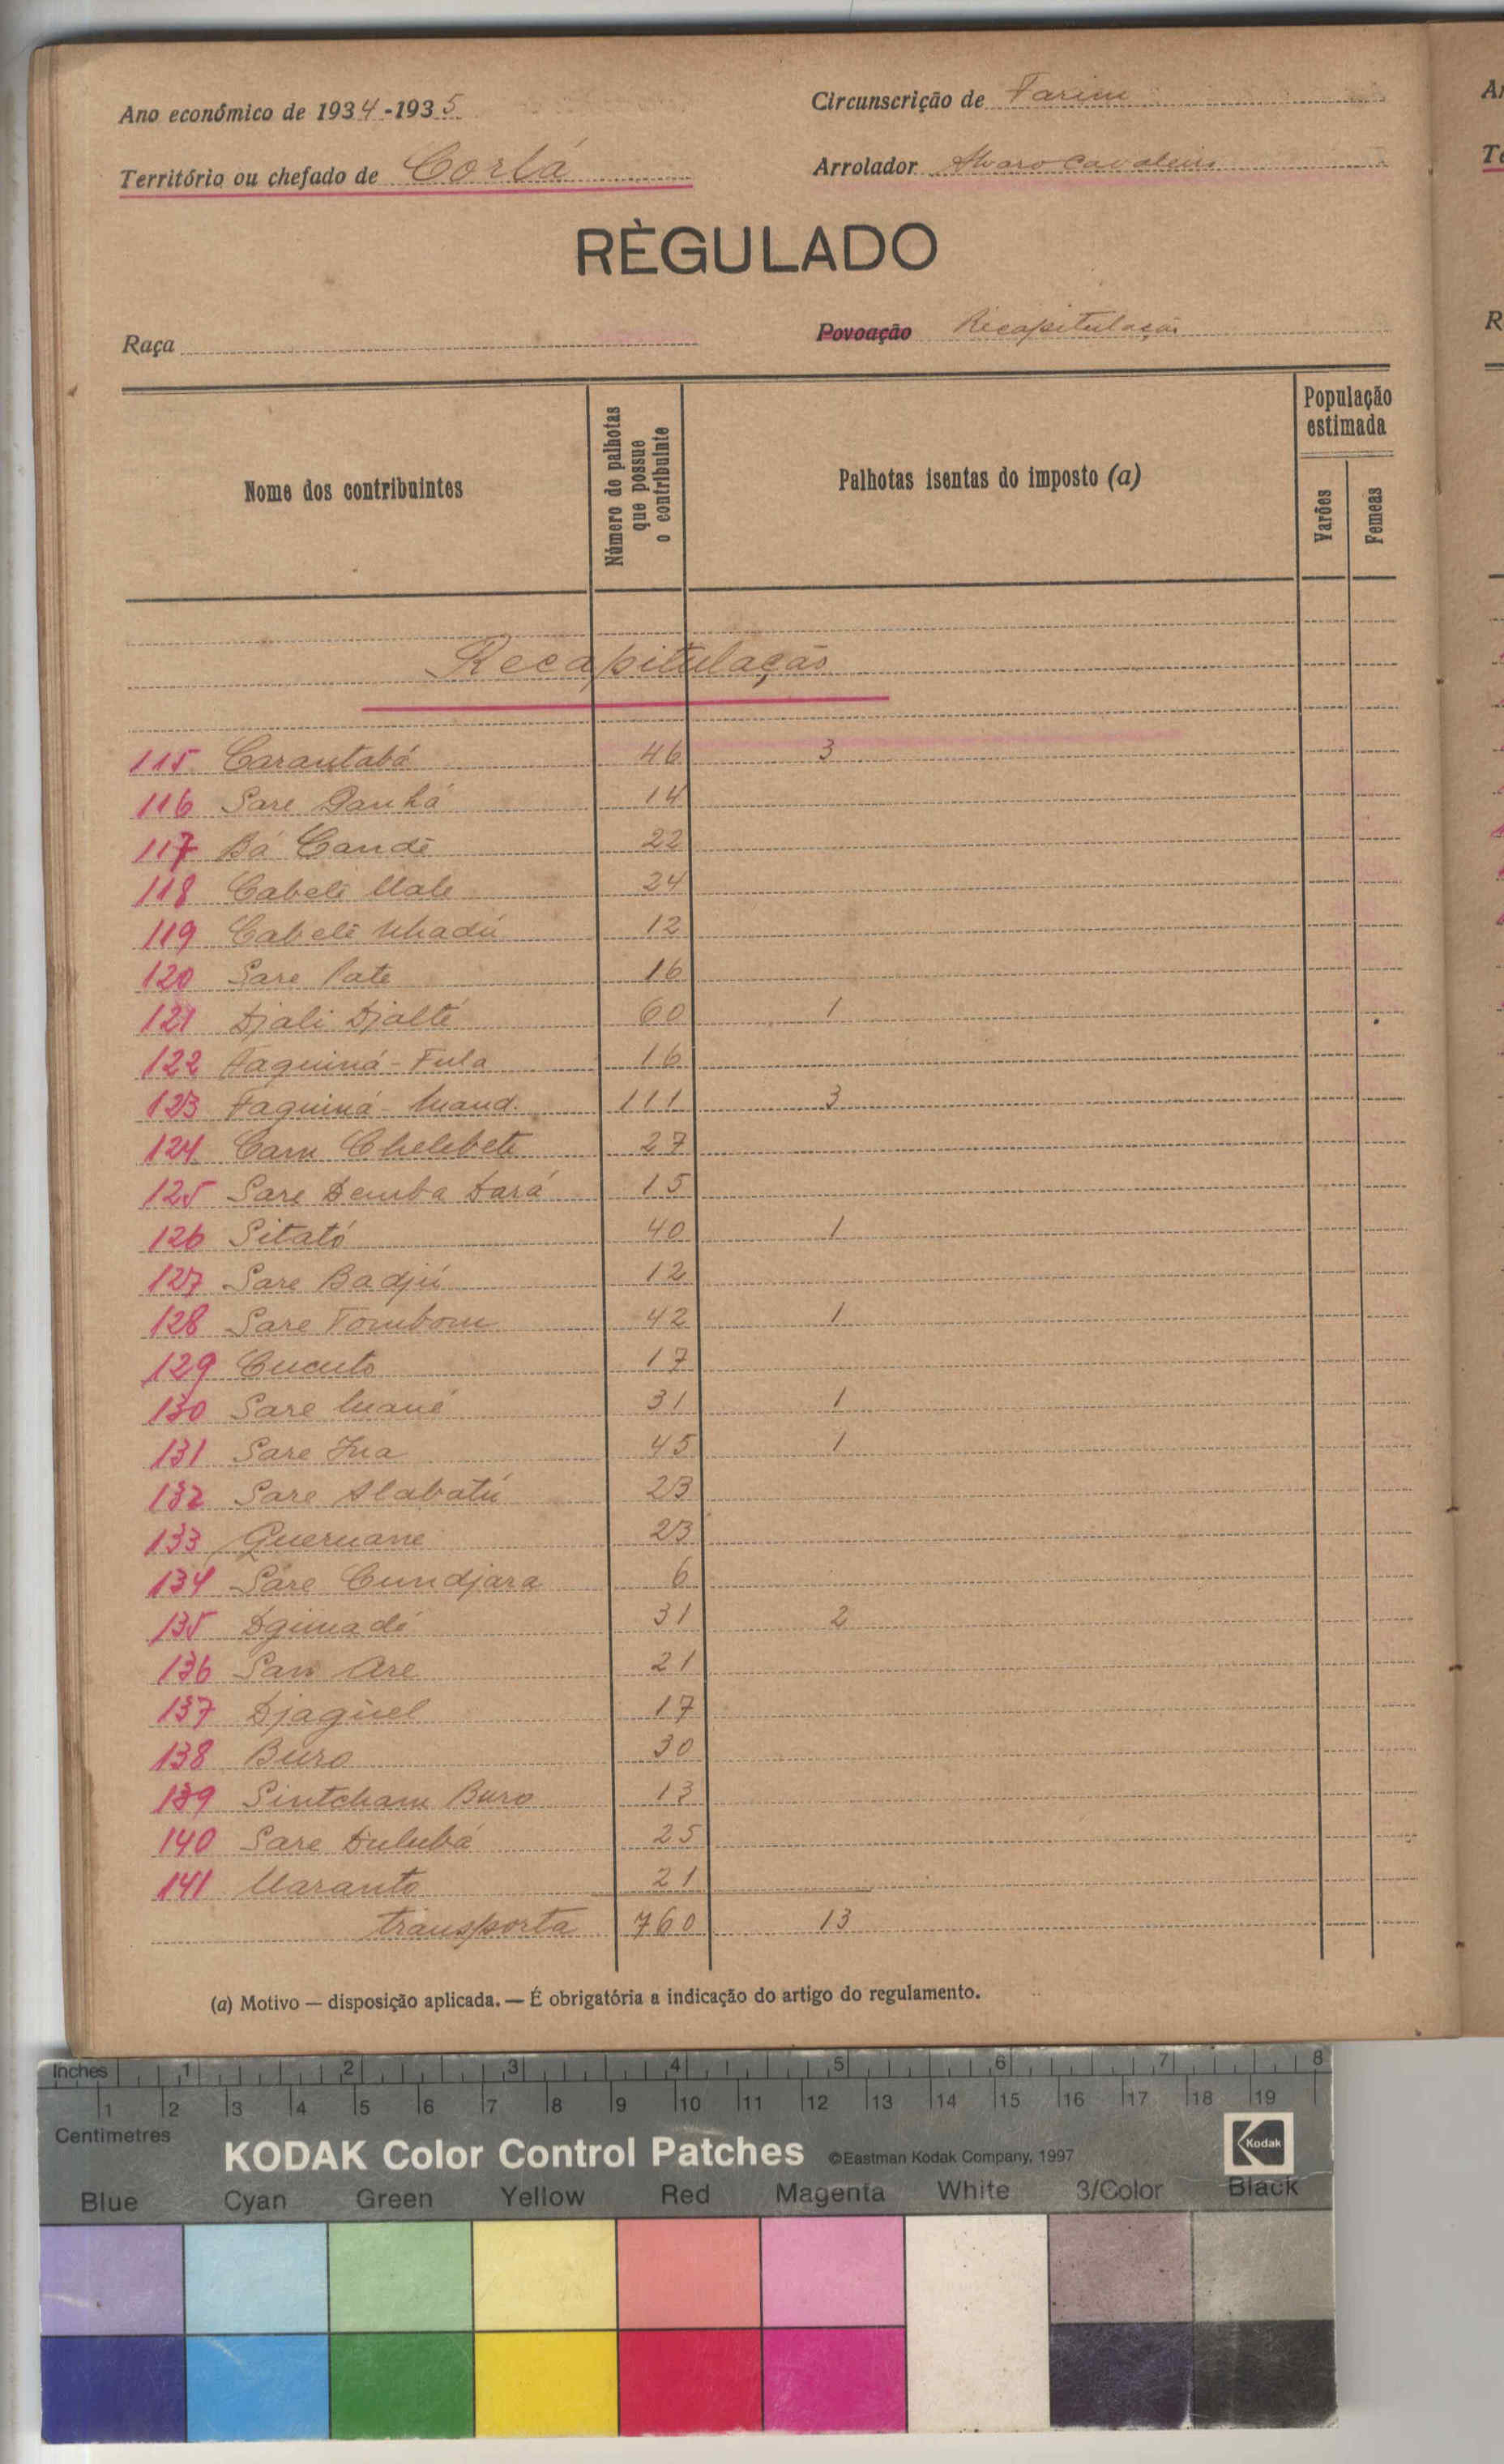 Ano económico de 1934-1935
Circunscrição de Farim
Território ou chefado de Corlá
Arrolador Alvaro Cavaleiro
RÈGULADO
Raça
Povoação Recapitulação
Nome dos contribuintes
Número de palhotas que possue o contribuinte
Palhotas isentas do imposto (a)
População estimada
Varões
Femeas
Recapitulação
115 Carantabá 46 3
116 Sare Danhá 14
117 Bá Candê 22
118 Cabeli Uale 24
119 Cabeli Uhadú 12
120 Sare Pate 16
121 Djali Djalté 60 1
122 Faquiná-Fula 16
123 Faquiná-Mand. 111 3
124 Cam Chelebete 27
125 Sare Demba Dará 15
126 Sitató 40 1
127 Sare Badjú 12
128 Sare Tombom 42 1
129 Cucuto 17
130 Sare Mané 31 1
131 Sare Ina 45 1
132 Sare Alabatú 23
133 Queruane 23
134 Sare Cundjara 6
135 Dgimadé 31 2
136 San Are 21
137 Djagüel 17
138 Buro 30
139 Sintcham Buro 13
140 Sare Dulubá 25
141 Maranto 21
transporta 760 13
(a) Motivo — disposição aplicada. — É obrigatória a indicação do artigo do regulamento.
Inches 1 2 3 4 5 6 7 8
1 2 3 4 5 6 7 8 9 10 11 12 13 14 15 16 17 18 19
Centimetres
KODAK Color Control Patches ©Eastman Kodak Company, 1997 Kodak
Blue Cyan Green Yellow Red Magenta White 3/Color Black